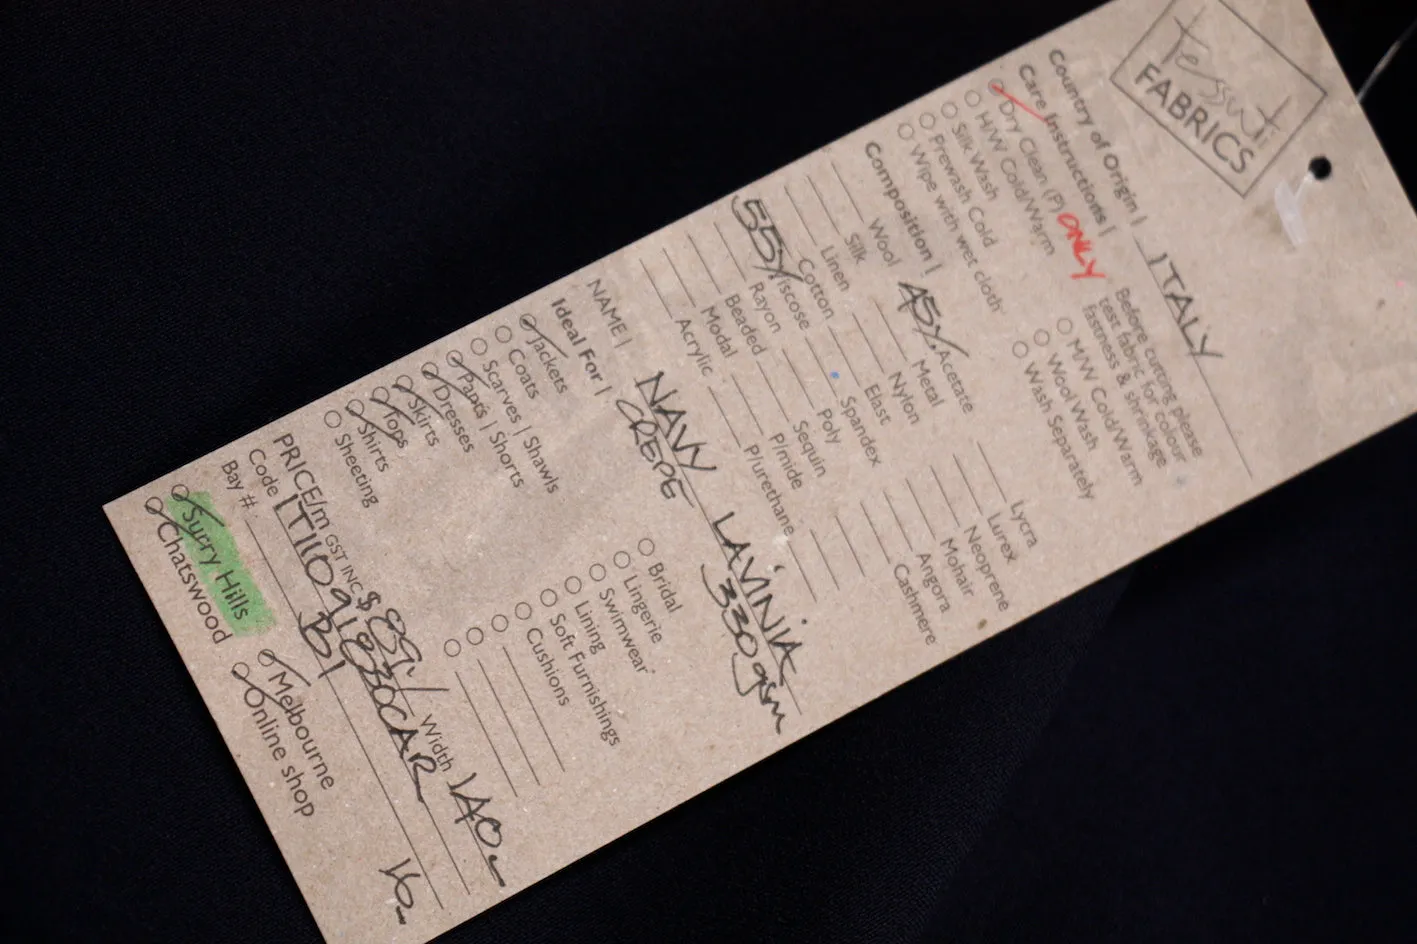 tessuti
FABRICS
Country of Origin | ITALY
Care Instructions |
Before cutting please
test fabric for colour
fastness & shrinkage
Dry Clean (P) ONLY
H/W Cold/Warm
Silk Wash
Prewash Cold
Wipe with wet cloth
M/W Cold/Warm
Wool Wash
Wash Separately
Composition |
Wool 45% Acetate Lycra
Silk Metal Lurex
Linen Nylon Neoprene
Cotton Elast Mohair
55% Viscose Spandex Angora
Rayon Poly Cashmere
Beaded Sequin
Modal P/mide
Acrylic P/urethane
NAME | NAVY LAVINIA
CREPE 330gsm
Ideal For |
Jackets Bridal
Coats Lingerie
Scarves | Shawls Swimwear
Pants | Shorts Lining
Dresses Soft Furnishings
Skirts Cushions
Tops
Shirts
Sheeting
PRICE/m GST INC $89 Width 140
Code
Bay #. B1
Surry Hills Melbourne
Chatswood Online shop